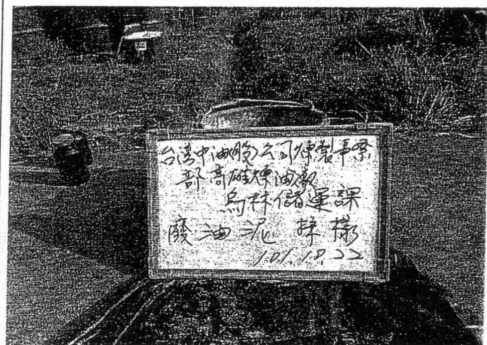 台湾中油(股)公司煉製事業
部高雄煉油廠
烏林儲運課
廢油泥 採樣
101.10.22